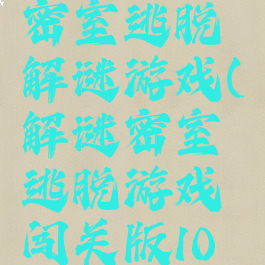 密室逃脱
解谜游戏(
解谜密室
逃脱游戏
闯关版10